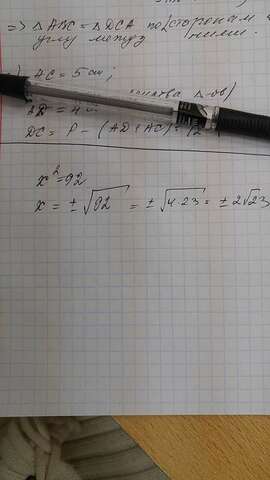 => △ABC = △DCA по 2 сторонам
углу между ними.
AC = 5 см;
AD = 4
DC = P - (AD + AC) = 12
x² = 92
x = ± √92 = ± √4·23 = ± 2√23